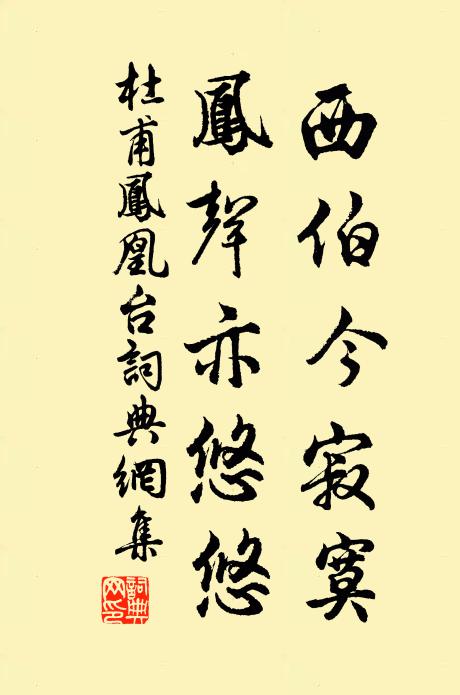 西伯今寂寞
鳳聲亦悠悠
杜甫鳳凰台詞典網集
詞典網印